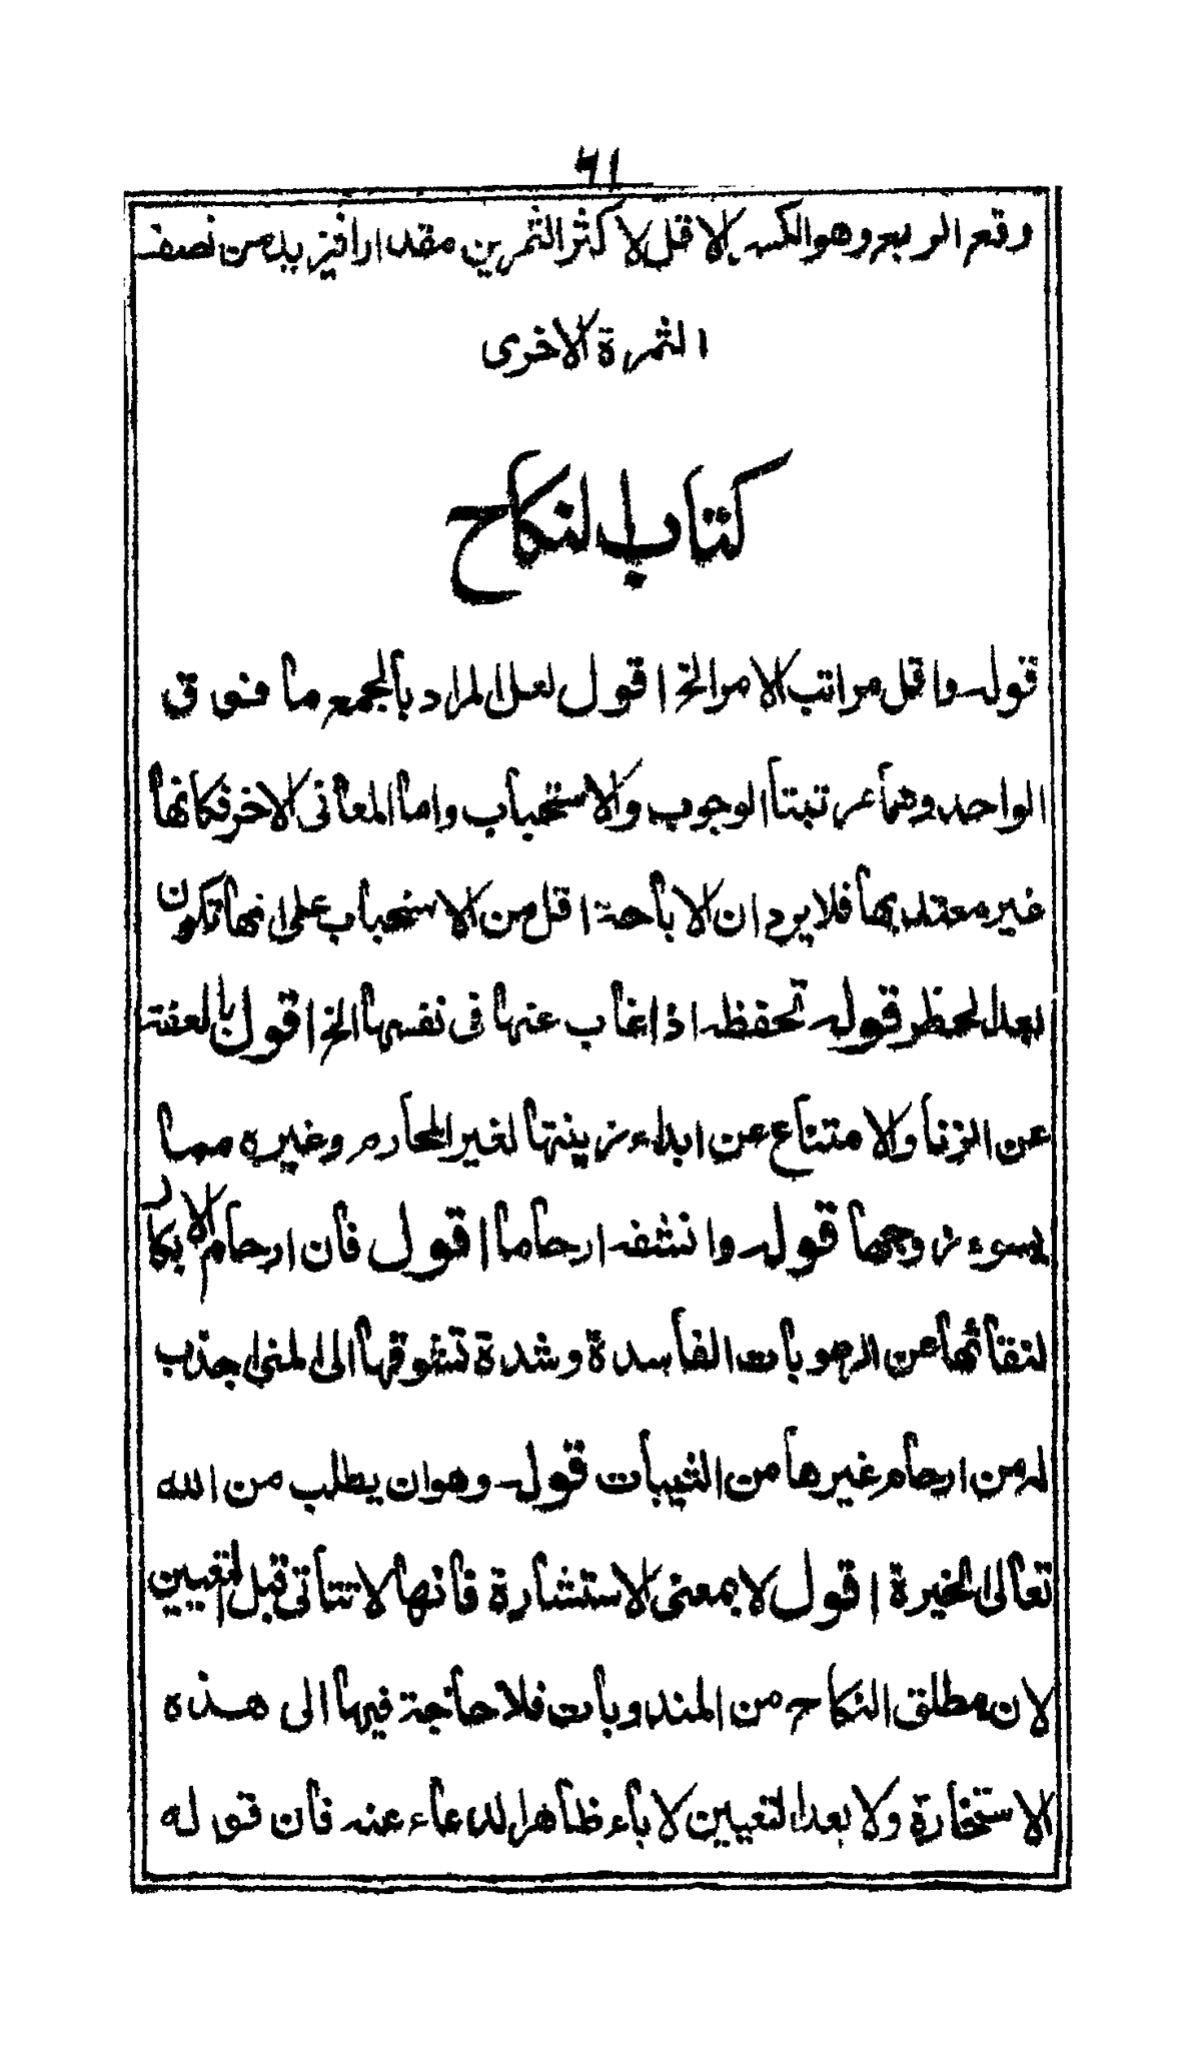 ٦١
وقع الربع وهو الكسر الاقل لاكثر الثمرين مقدارا فيزيد من نصف
الثمرة الاخرى
كتاب النكاح
قوله واقل مراتب الامر الخ اقول لعل المراد بالجمع ما فوق
الواحد وهما مرتبتا الوجوب والاستحباب واما المعاني الاخر فكانها
غير معتد بها فلا يرد ان الاباحة اقل من الاستحباب على انها تكون
بعد الحظر قوله تحفظه اذا غاب عنها في نفسها الخ اقول بالعفة
عن الزنا والامتناع عن ابداء زينتها لغير المحارم وغيره مما
يسوء زوجها قوله وانشفه ارحاما اقول فان ارحام الابكار
لنقائها عن الرطوبات الفاسدة وشدة تشوقها الى المنى اجذب
له من ارحام غيرها من الثيبات قوله وهو ان يطلب من الله
تعالى الخيرة اقول لا بمعنى الاستشارة فانها لا تتأتى قبل التعيين
لان مطلق النكاح من المندوبات فلا حاجة فيها الى هذه
الاستخارة ولا بعد التعيين لاباء ظاهر الدعاء عنه فان قوله